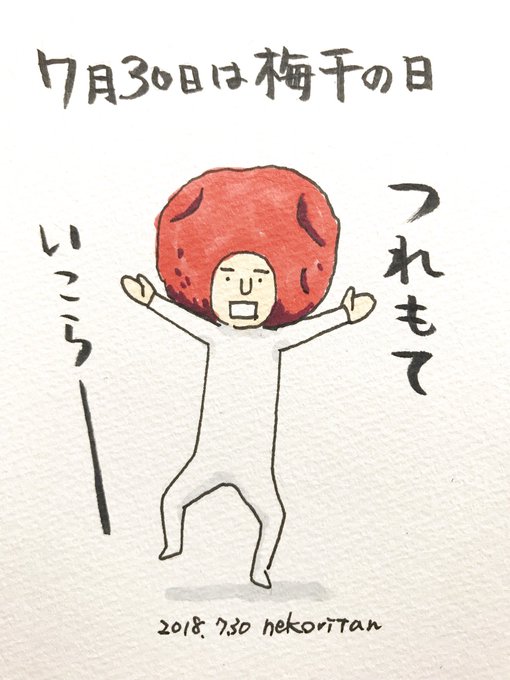 7月30日は梅干の日
つれもて
いこらー
2018.7.30 nekoritan